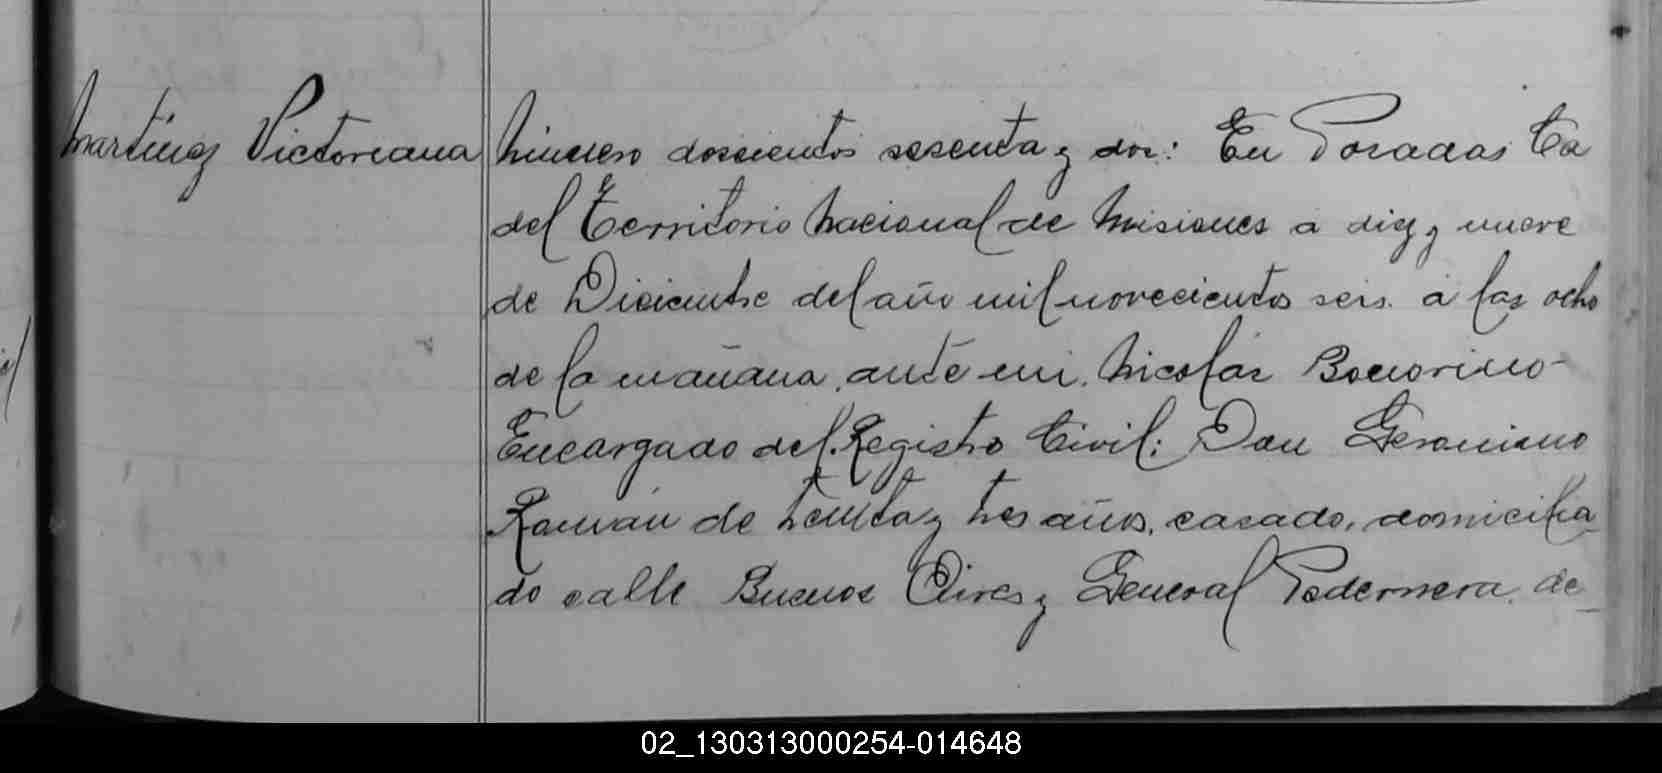 Martinez Victoreana
Número doscientos sesenta y dos: En Posadas Ca
del Territorio Nacional de Misiones a diez y nueve
de Diciembre del año mil novecientos seis. a las ocho
de la mañana, ante mi, Nicolás
Encargado del Registro Civil: Don Geronimo
Román de treinta y tres años, casado, domicilia
do calle Buenos Aires y General Pedernera, de
02_130313000254-014648